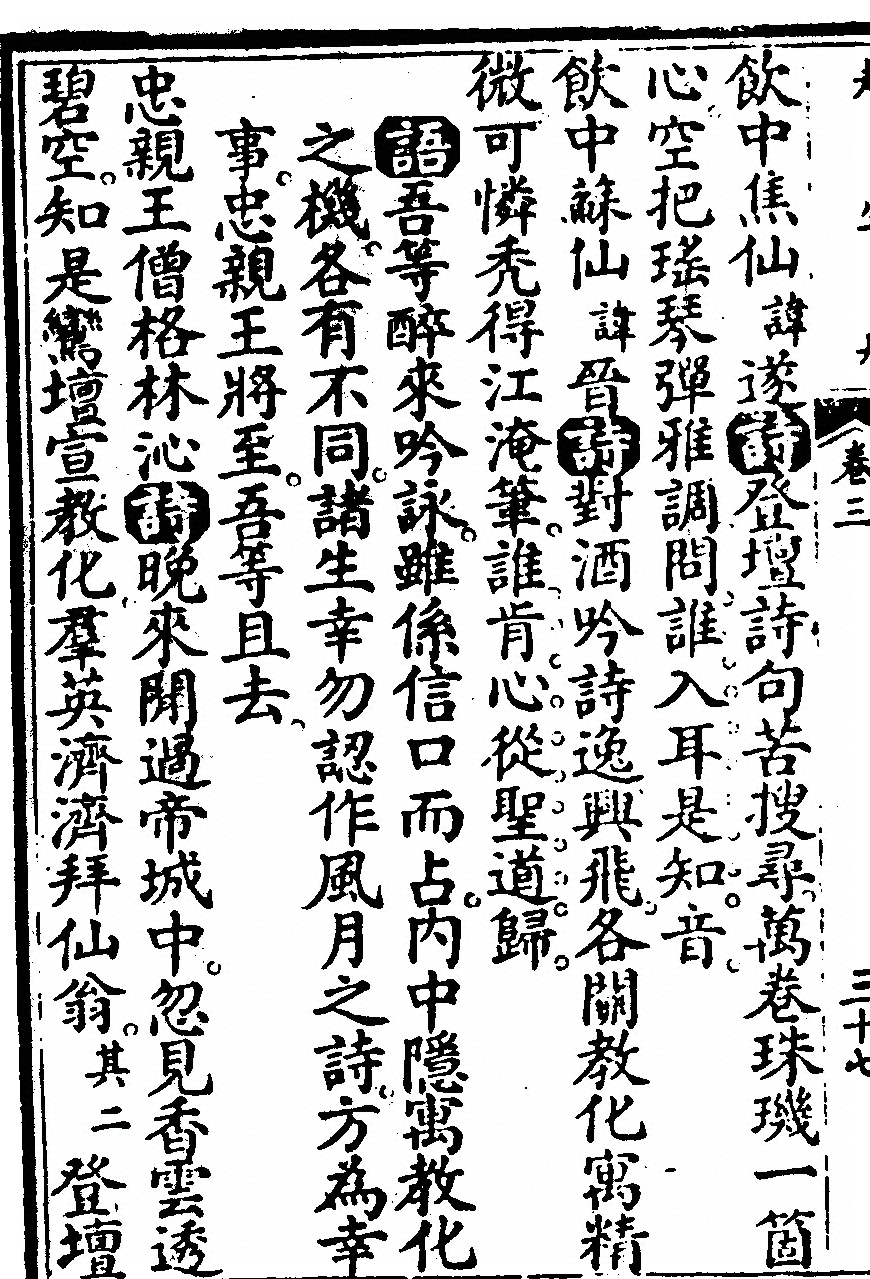 卷三
三十七
飲中焦仙諱遂詩登壇詩句苦搜尋萬卷珠璣一箇
心空把瑤琴彈雅調問誰入耳是知音
飲中蘇仙諱晉詩對酒吟詩逸興飛各關教化寓精
微可憐禿得江淹筆誰肯心從聖道歸
語吾等醉來吟詠雖係信口而占內中隱寓教化
之機各有不同諸生幸勿認作風月之詩方為幸
事忠親王將至吾等且去
忠親王僧格林沁詩晚來閒過帝城中忽見香雲透
碧空知是鸞壇宣教化羣英濟濟拜仙翁其二登壇